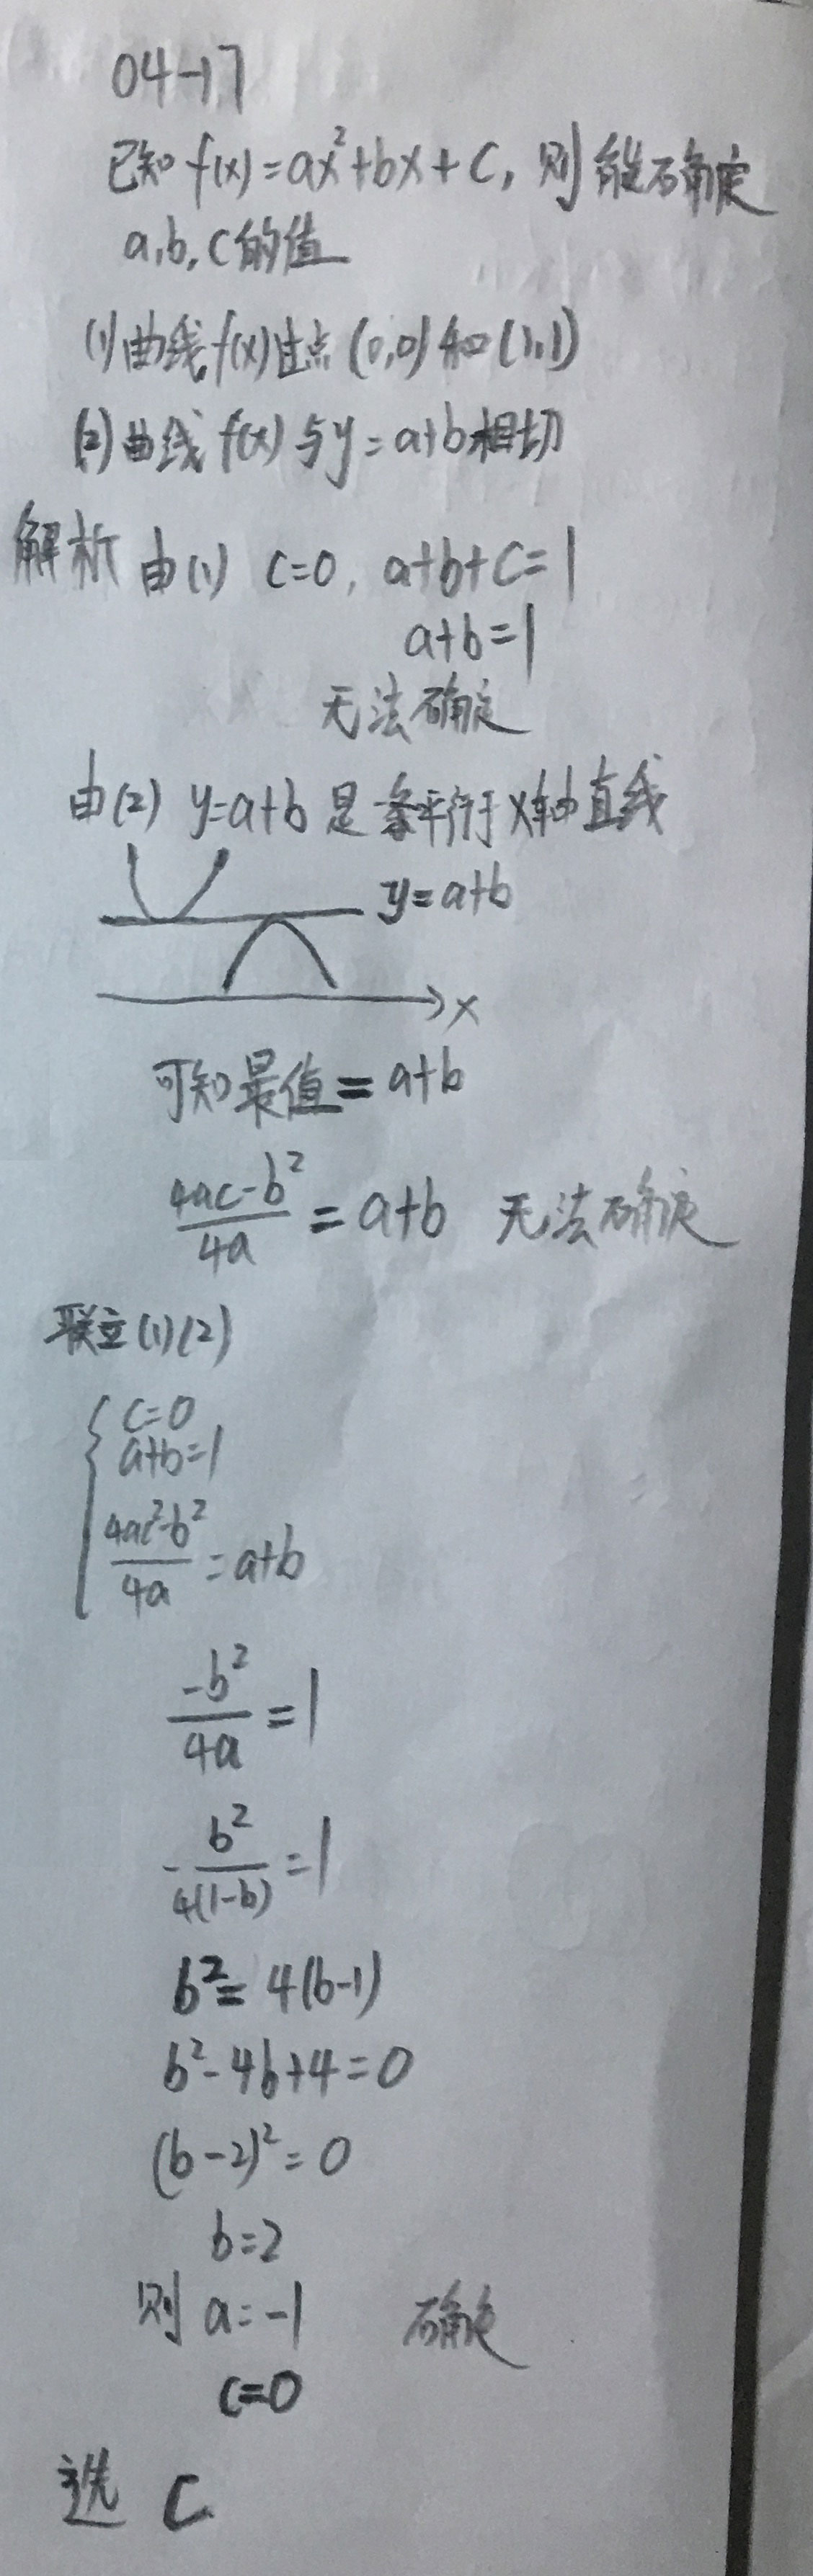 04-17
已知 f(x)=ax²+bx+c, 则能否确定
a,b,c的值
(1)曲线f(x)过点(0,0)和(1,1)
(2)曲线f(x)与y=a+b相切
解析 由(1) c=0, a+b+c=1
a+b=1
无法确定
由(2) y=a+b 是一条平行于x轴直线
y=a+b
x
可知最值=a+b
(4ac-b²)/(4a) = a+b 无法确定
联立(1)(2)
{ c=0
a+b=1
(4ac²-b²)/(4a) = a+b
(-b²)/(4a) = 1
-b²/(4(1-b)) = 1
b²=4(b-1)
b²-4b+4=0
(b-2)²=0
b=2
则 a=-1 确定
c=0
选 C